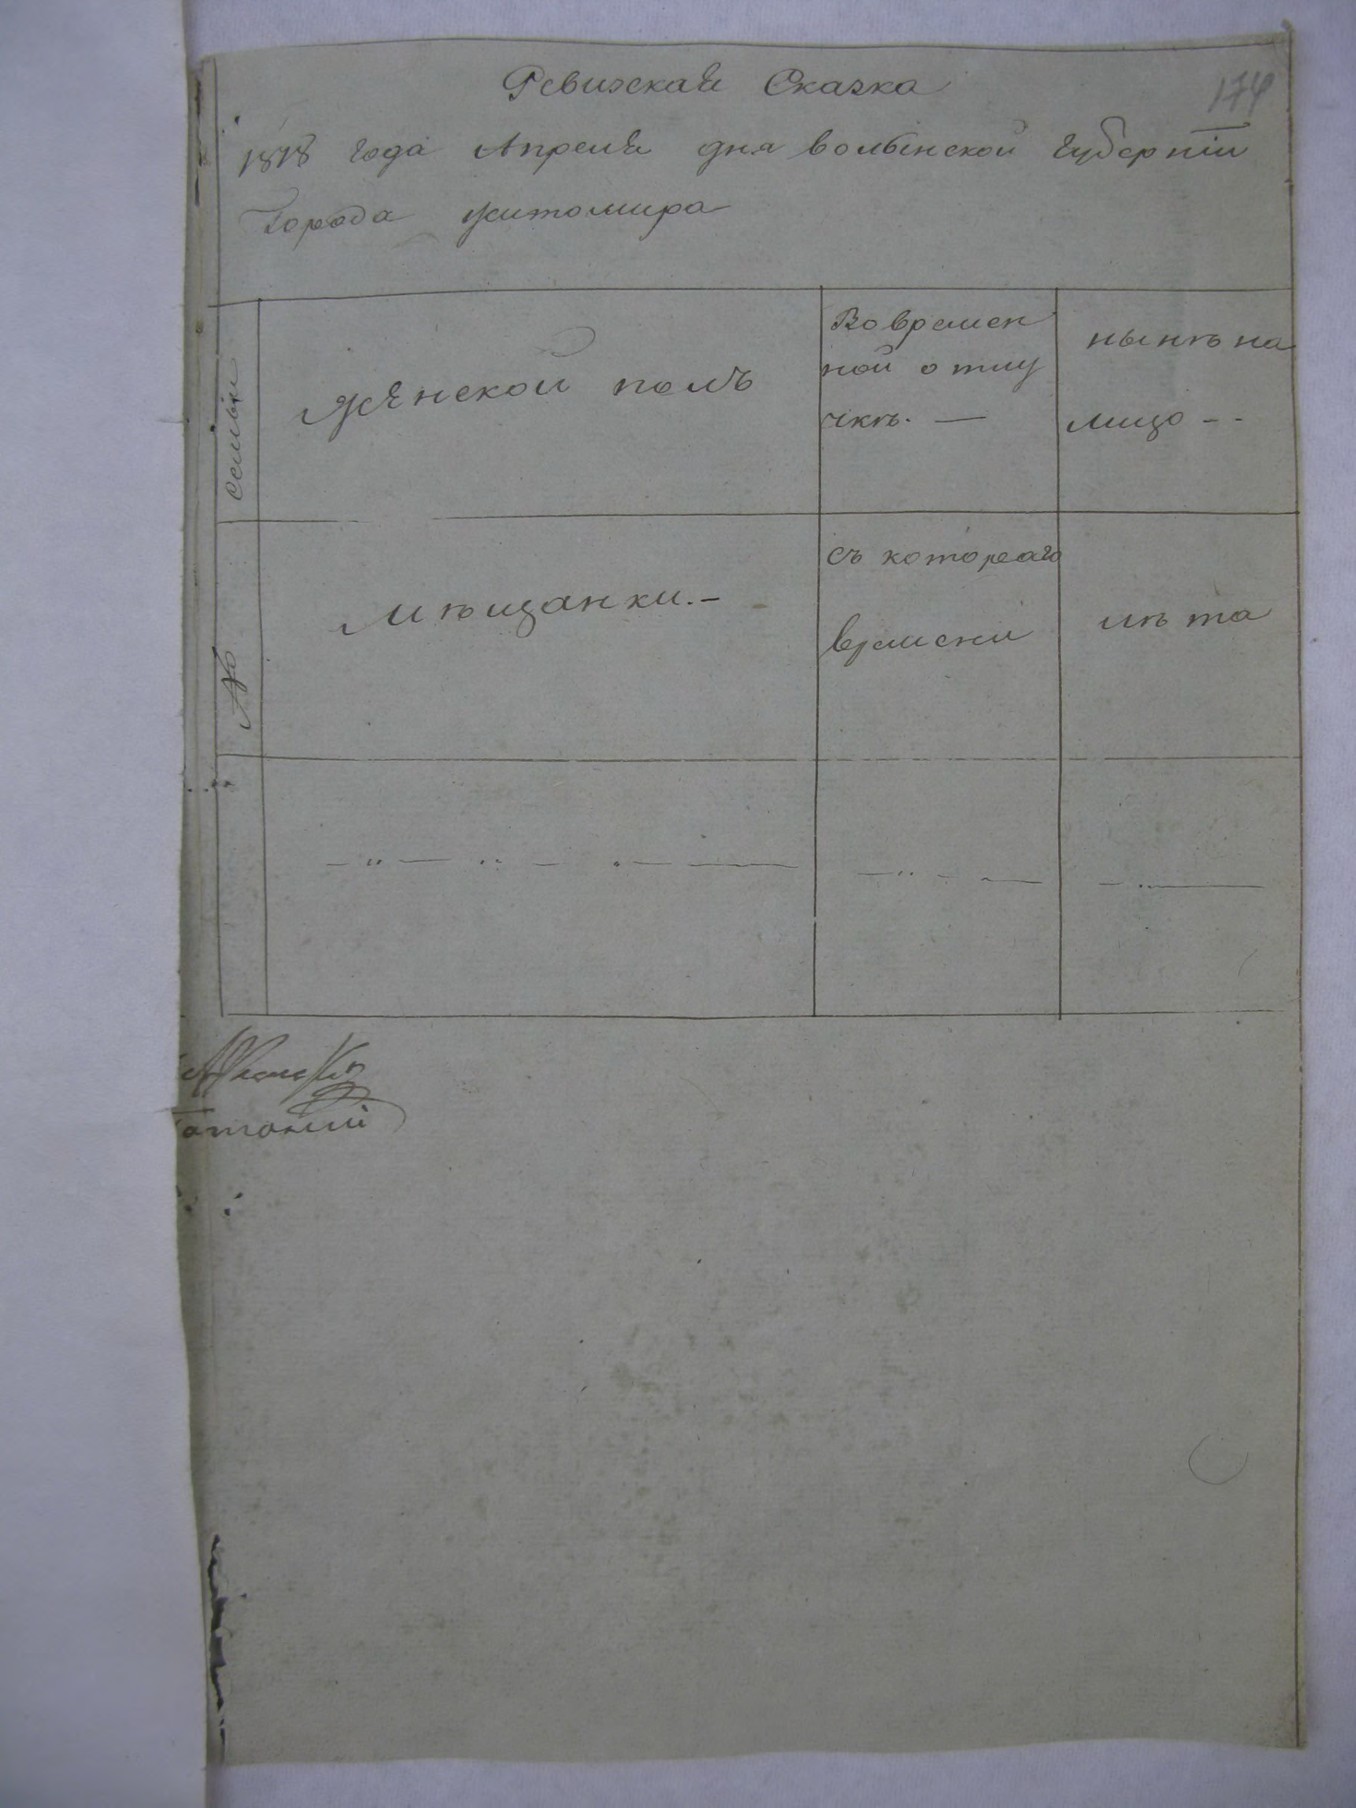 174
Ревижская Сказка
1818 года Апреля дня волынской губернїи
Города житомира
№ семьи
женской полъ
Вовремен
ной отлу
чкѣ. —
нынѣ на
лицо --
мѣщанки.-
съ котораго
времени
лѣта